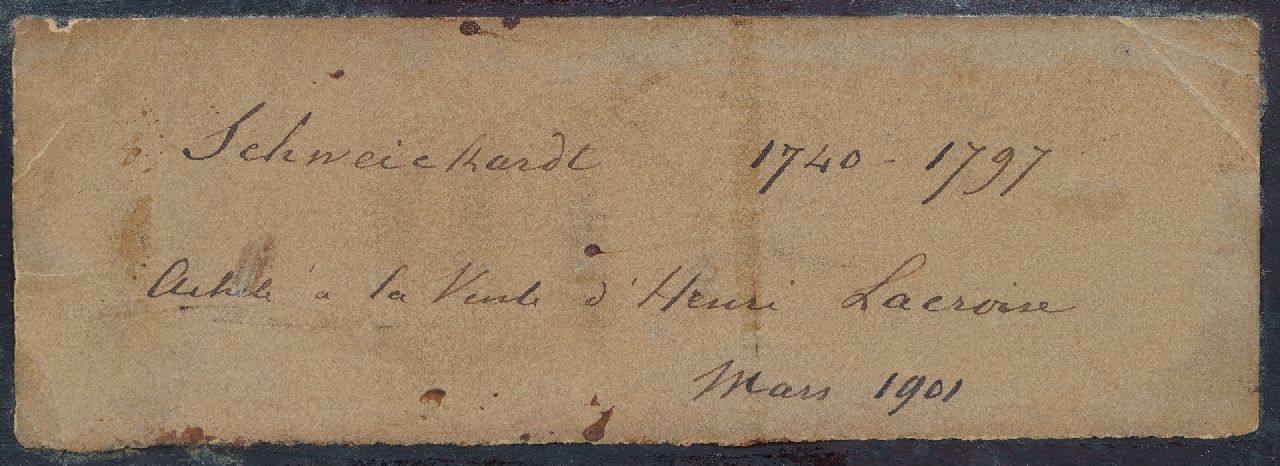 Schweickardt 1740 - 1797
Acheté à la Vente d'Henri Lacroix
Mars 1901